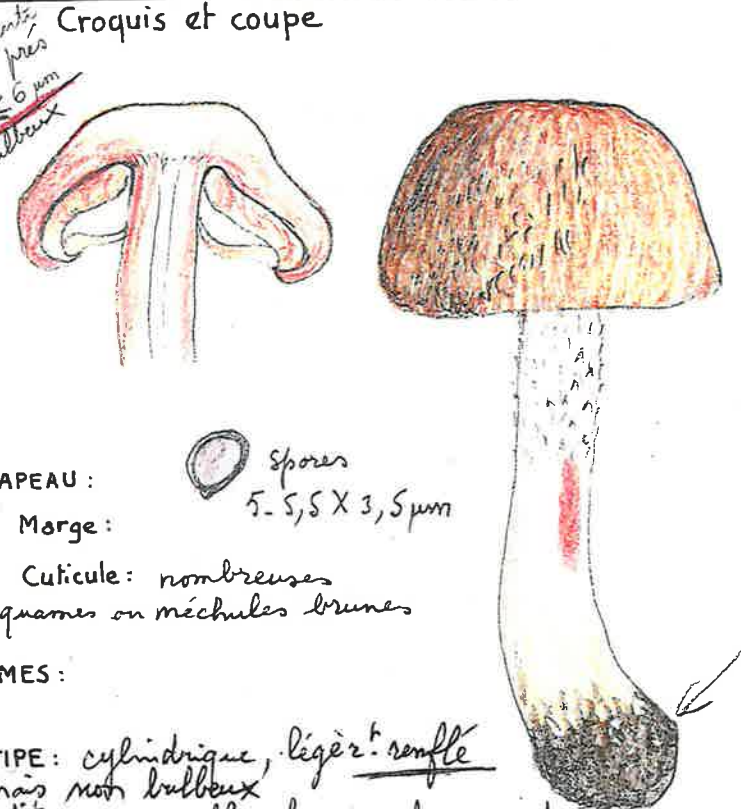 Croquis et coupe
près
6 µm
spores
5-5,5 X 3,5 µm
APEAU :
Marge :
Cuticule : nombreuses
quames ou méchules brunes
MES :
IPE : cylindrique, légèrt renflé
mais non bulbeux